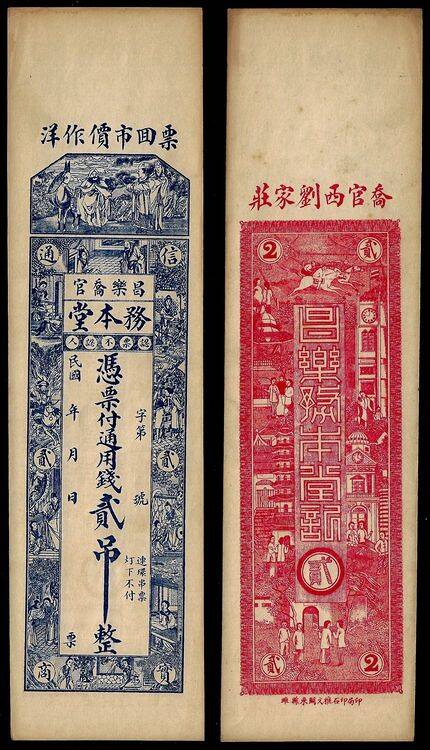 票囬市價作洋
信
通
昌樂喬官
務本堂
認票不認人
字第 號
憑票付通用錢貳吊整
民國 年 月 日
連環串票
灯下不付
票
貳
貳
實
商
喬官西劉家莊
貳
2
昌樂務本堂
貳
2
貳